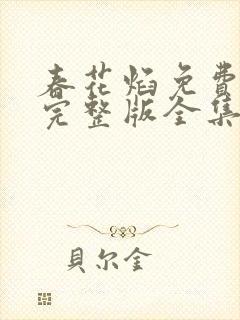 春花焰免费
完整版全集
貝尔金